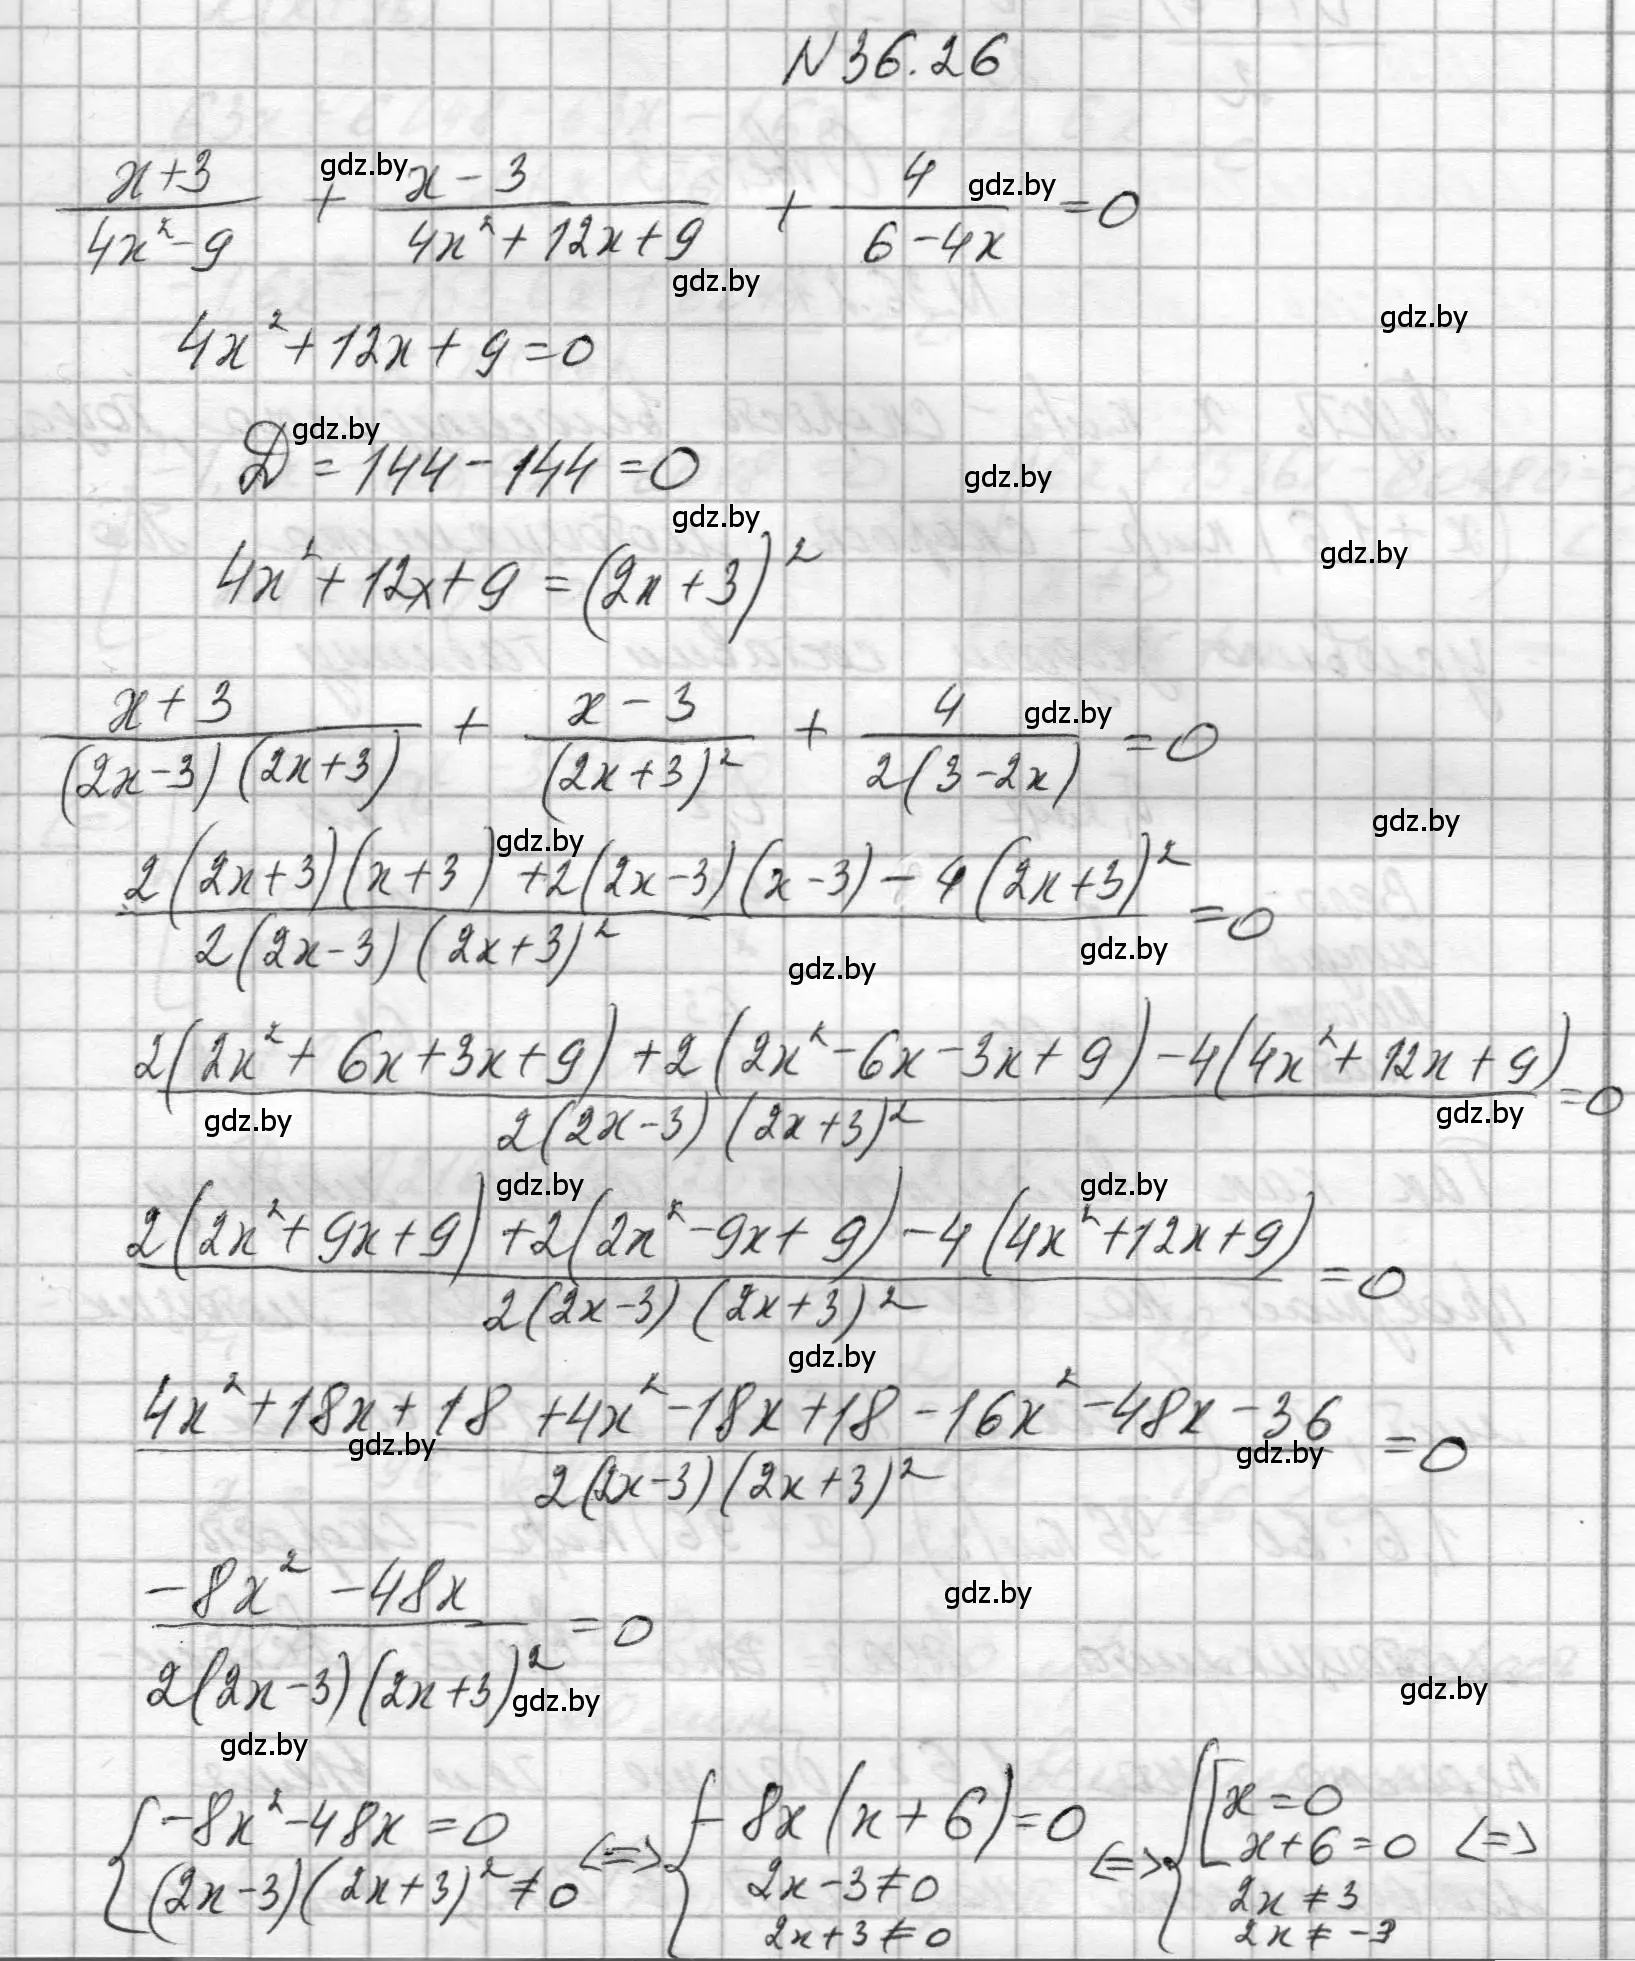 N 36.26
(x+3)/(4x²-9) + (x-3)/(4x²+12x+9) + 4/(6-4x) =0
4x²+12x+9=0
D=144-144=0
4x²+12x+9=(2x+3)²
(x+3)/((2x-3)(2x+3)) + (x-3)/((2x+3)²) + 4/(2(3-2x)) =0
(2(2x+3)(x+3)+2(2x-3)(x-3)-4(2x+3)²)/(2(2x-3)(2x+3)²) =0
(2(2x²+6x+3x+9)+2(2x²-6x-3x+9)-4(4x²+12x+9))/(2(2x-3)(2x+3)²) =0
(2(2x²+9x+9)+2(2x²-9x+9)-4(4x²+12x+9))/(2(2x-3)(2x+3)²) =0
(4x²+18x+18+4x²-18x+18-16x²-48x-36)/(2(2x-3)(2x+3)²) =0
(-8x²-48x)/(2(2x-3)(2x+3)²) =0
{ -8x²-48x=0 ; (2x-3)(2x+3)²≠0 <=> { -8x(x+6)=0 ; 2x-3≠0 ; 2x+3≠0 <=> { [ x=0 ; x+6=0 ; 2x≠3 ; 2x≠-3 <=>
gdz.by